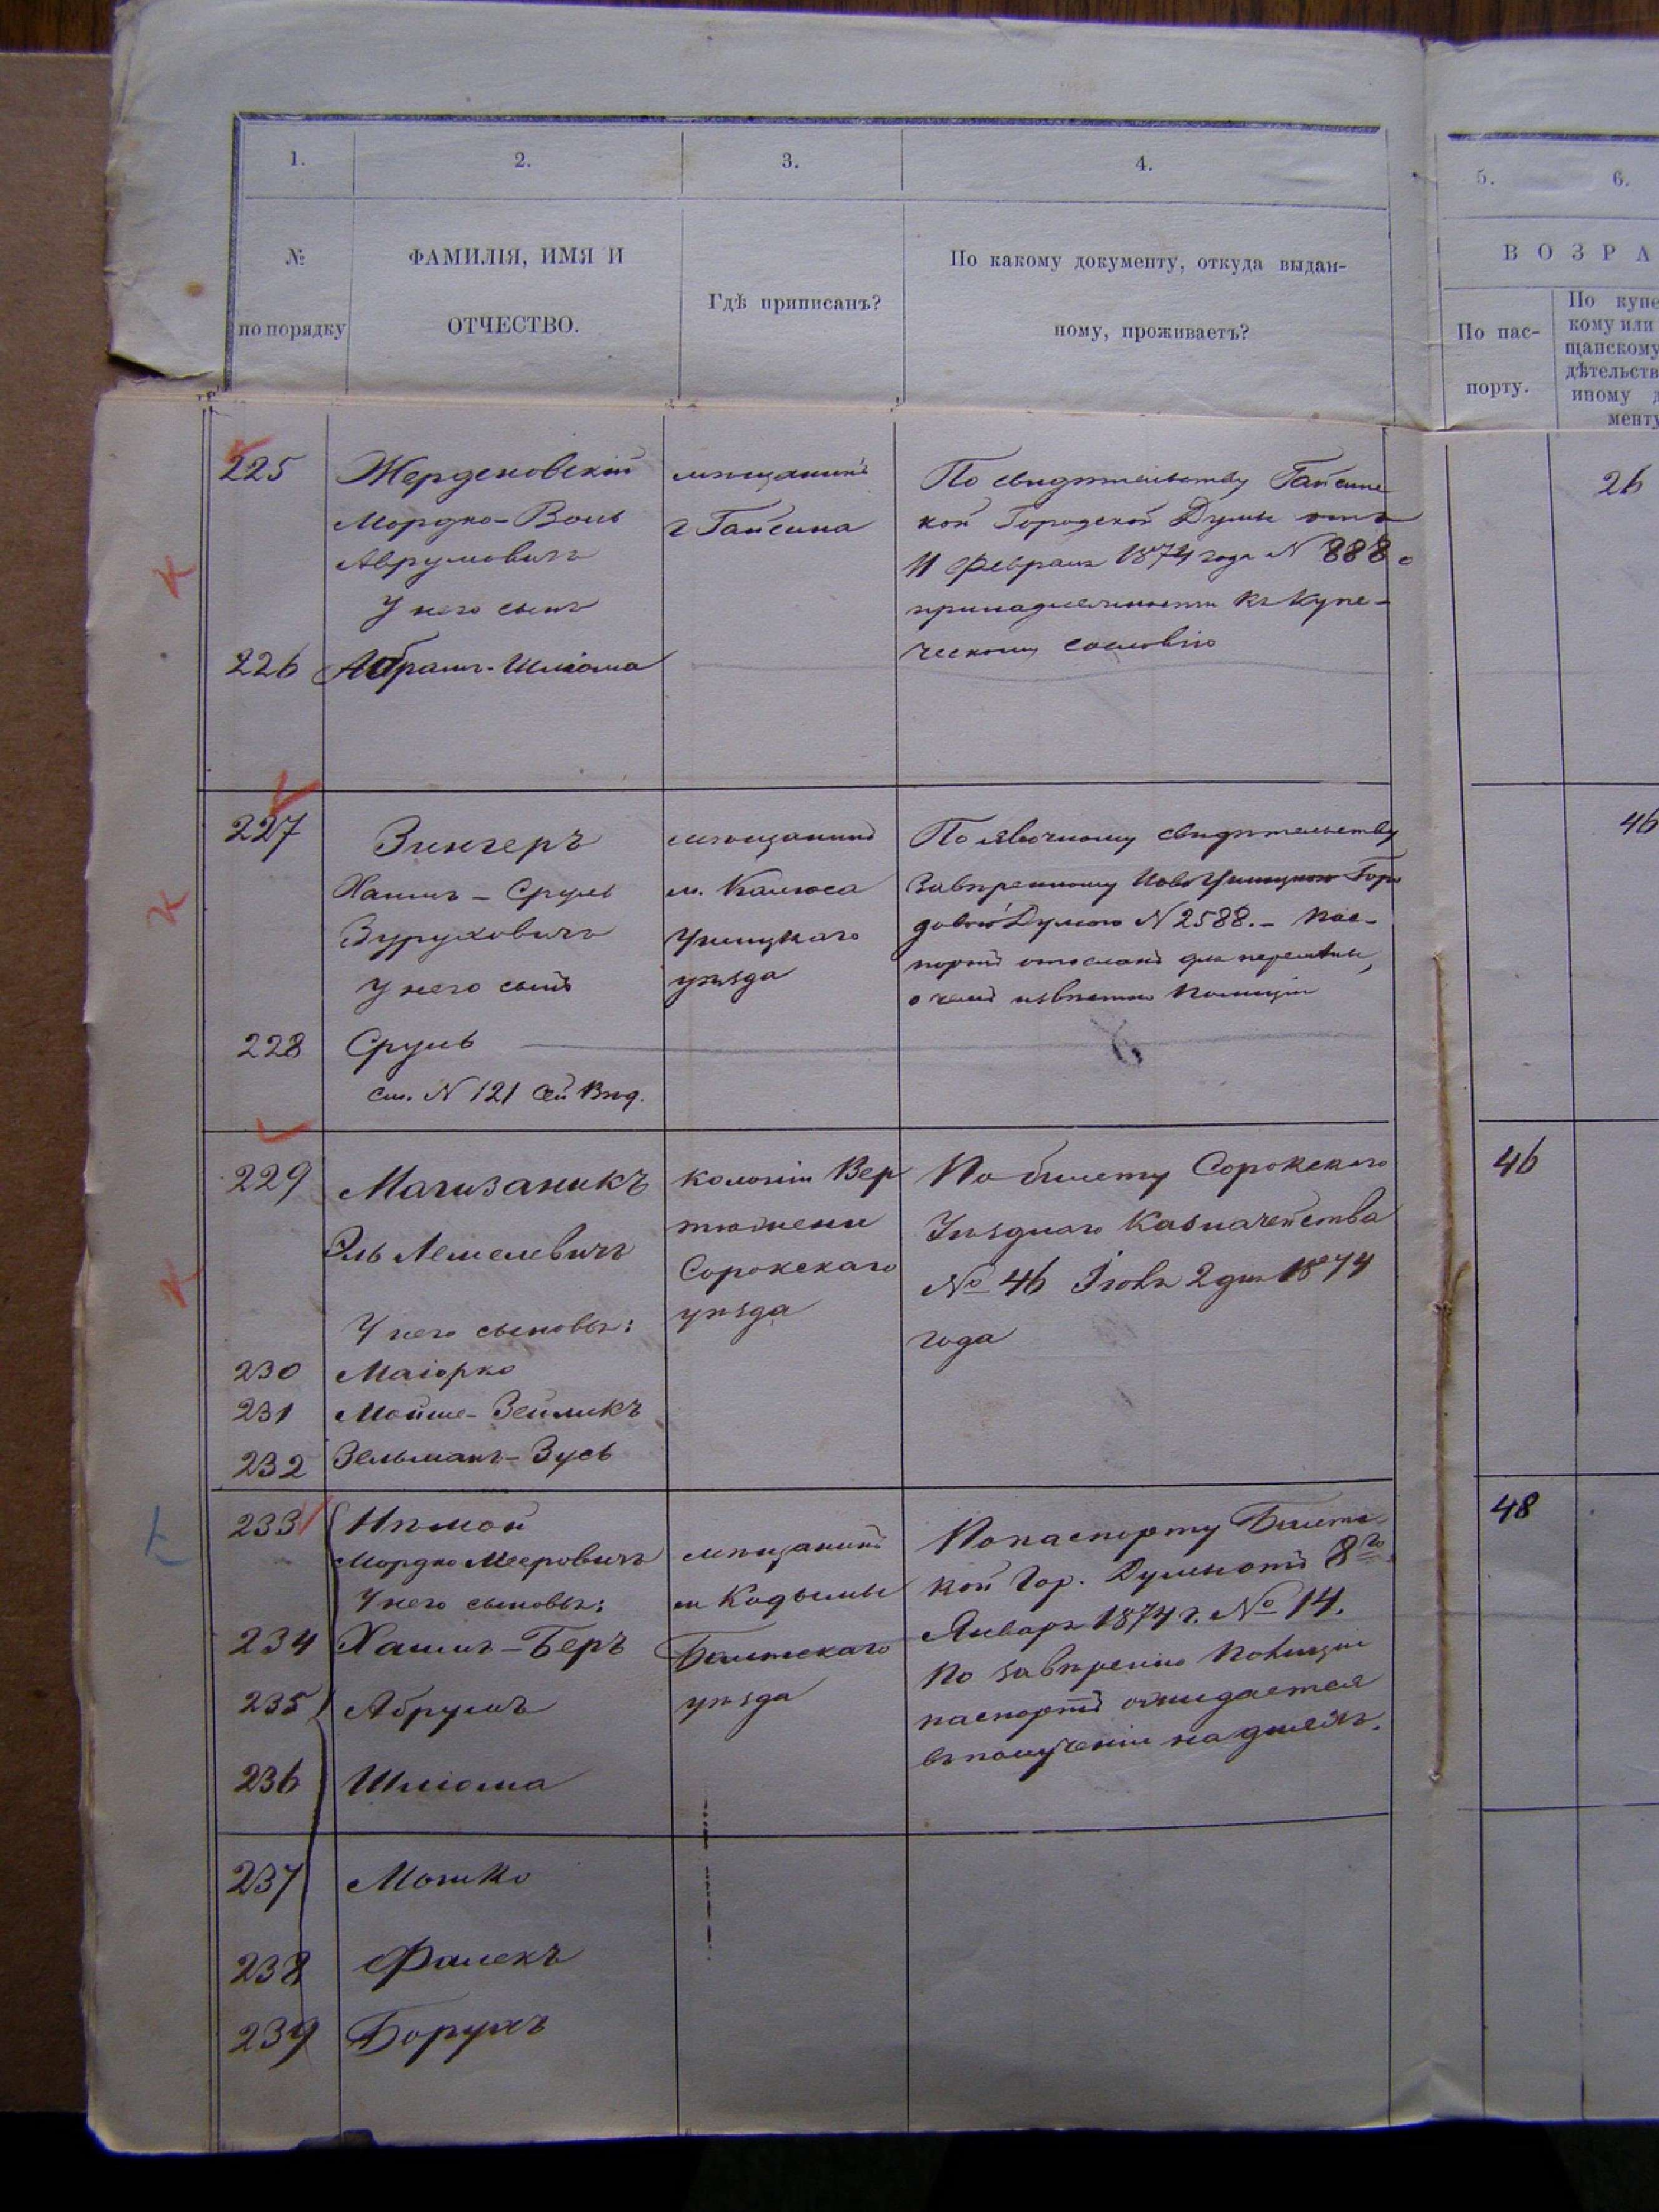 1.
2.
3.
4.
5.
6.
№
по порядку
ФАМИЛІЯ, ИМЯ И
ОТЧЕСТВО.
Гдѣ приписанъ?
По какому документу, откуда выдан-
ному, проживаетъ?
ВОЗРА
По пас-
порту.
По купе
кому или
щанскому
дѣтельств
иному д
менту
225
Жерденовскій
Мордко-Воль
Аврумовичъ
У него сынъ
226 Абрамъ-Шліома
мѣщанинъ
г Гайсина
По свидѣтельству Гайсинс
кой Городской Думы отъ
11 февраля 1874 года N 888 о
принадлежности къ купе-
ческому сословію
26
227
Зингеръ
Хаимъ-Сруль
Зуруховичъ
У него сынъ
228 Сруль
см. N 121 сей Вѣд.
мѣщанинъ
м. Калюса
Ушицкаго
уѣзда
По явочному свидѣтельству
завѣренному Новоушицкою Горо
довою Думою N 2588.- Пас-
портъ отосланъ для перемѣны,
о чемъ извѣстно Полиціи
46
229
Магизаникъ
Эль Лемелевичъ
У него сыновья:
230 Маіорко
231 Мойше-Зейликъ
232 Зельманъ-Зусь
колоніи Вер
тюжени
Сорокскаго
уѣзда
По билету Сорокскаго
Уѣзднаго Казначейства
№ 46 Іюля 2 дня 1874
года
46
233 Нѣмой
Мордко Мееровичъ
У него сыновья:
234 Хаимъ-Беръ
235 Абрумъ
236 Шліома
237 Мошко
238 Фалекъ
239 Борухъ
мѣщанинъ
м Кодымы
Балтскаго
уѣзда
По паспорту Балтс
кой Гор. Думы отъ 8го
Января 1874 г. № 14.
По завѣренію Полиціи
паспортъ ожидается
въ полученіи на дняхъ.
48